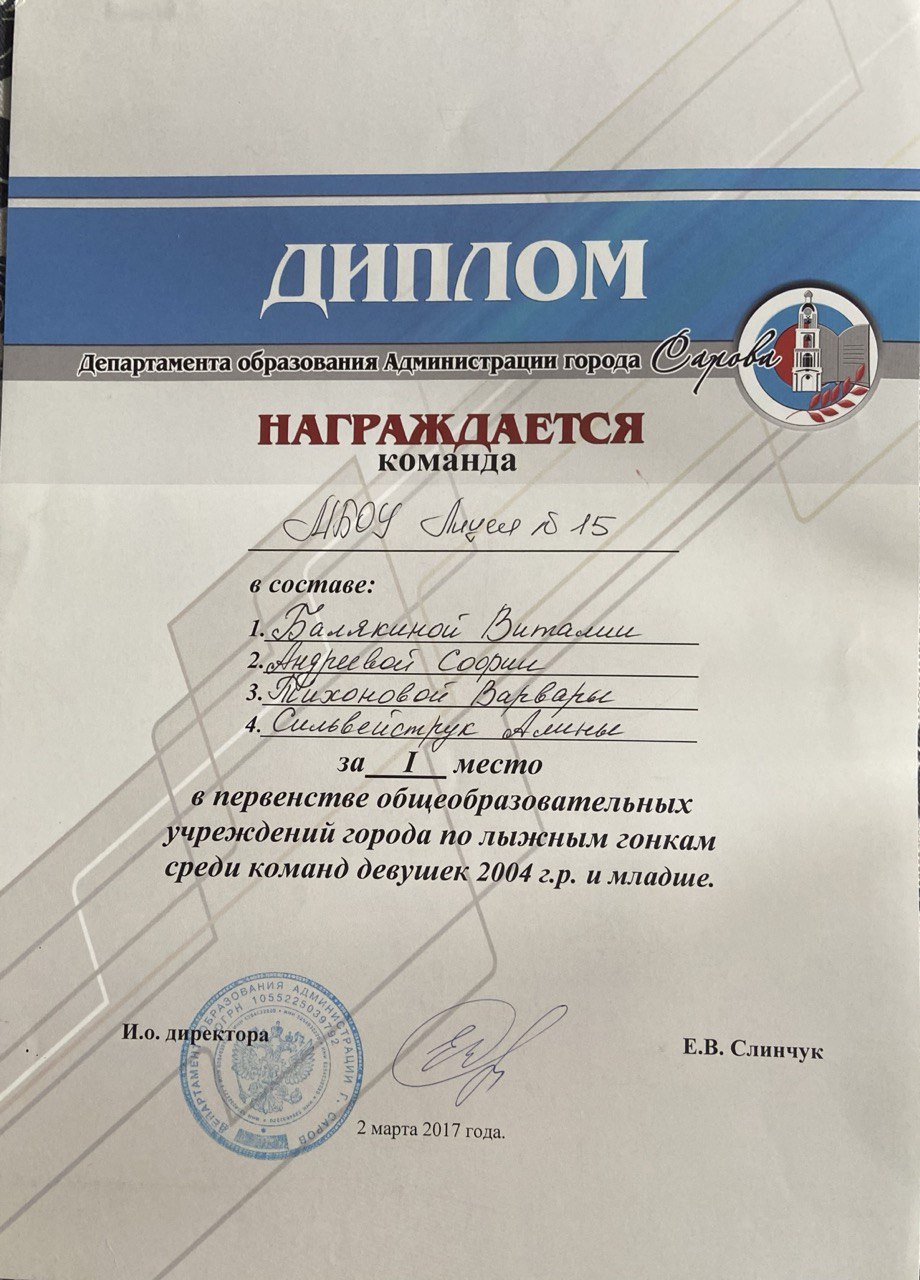 ДИПЛОМ
Департамента образования Администрации города Сарова
НАГРАЖДАЕТСЯ
команда
МБОУ Лицея № 15
в составе:
1. Балякиной Виталии
2. Андреевой Софии
3. Тихоновой Варвары
4. Сильвейструк Алины
за I место
в первенстве общеобразовательных
учреждений города по лыжным гонкам
среди команд девушек 2004 г.р. и младше.
И.о. директора
Е.В. Слинчук
ДЕПАРТАМЕНТ ОБРАЗОВАНИЯ АДМИНИСТРАЦИИ Г. САРОВ
ОГРН 1055225039792
2 марта 2017 года.